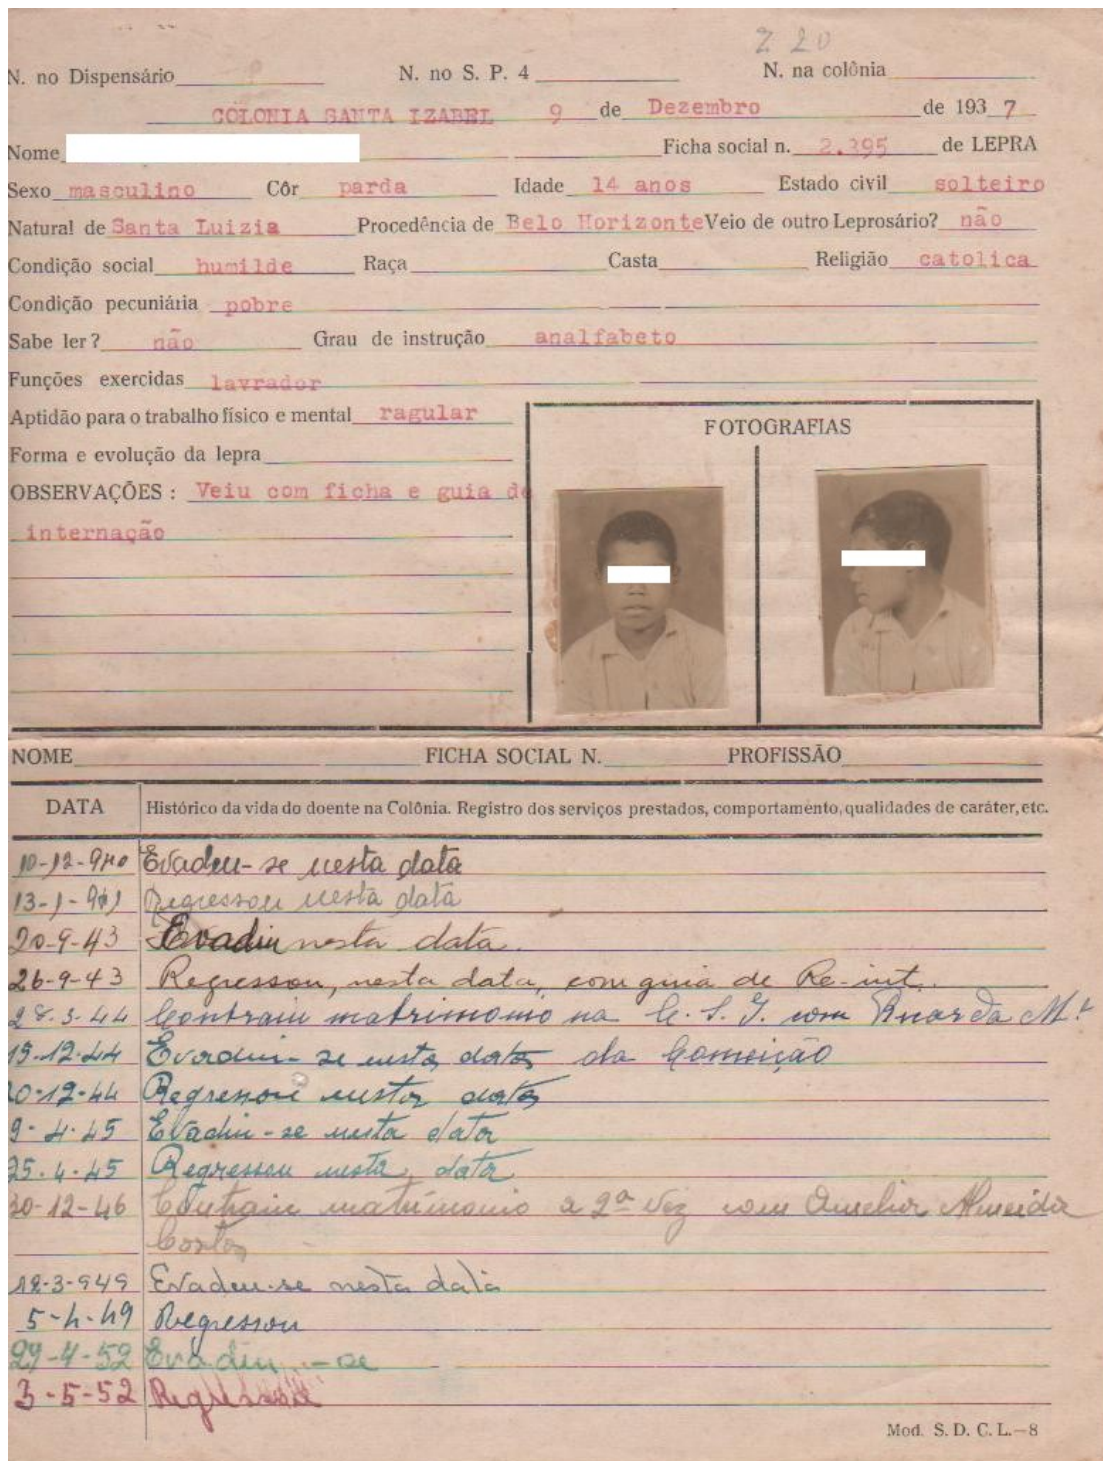 Z 20
N. no Dispensário N. no S. P. 4 N. na colônia
COLONIA SANTA IZABEL 9 de Dezembro de 1937
Nome Ficha social n. 2.395 de LEPRA
Sexo masculino Côr parda Idade 14 anos Estado civil solteiro
Natural de Santa Luizia Procedência de Belo Horizonte Veio de outro Leprosário? não
Condição social humilde Raça Casta Religião catolica
Condição pecuniária pobre
Sabe ler? não Grau de instrução analfabeto
Funções exercidas lavrador
Aptidão para o trabalho físico e mental ragular
Forma e evolução da lepra
OBSERVAÇÕES: Veiu com ficha e guia de
internação
FOTOGRAFIAS
NOME FICHA SOCIAL N. PROFISSÃO
DATA Histórico da vida do doente na Colônia. Registro dos serviços prestados, comportamento, qualidades de caráter, etc.
10-12-940 Evadeu-se nesta data
13-1-941 Regressou nesta data
20-9-43 Evadiu nesta data.
26-9-43 Regressou, nesta data, com guia de Re-int.
28-3-44 Contraiu matrimonio na C. S. I. com M.ª
15-12-44 Evadiu-se nesta data da Conceição
20-12-44 Regressou nesta data
9-4-45 Evadiu-se nesta data
25-4-45 Regressou nesta data
30-12-46 Contraiu matrimonio a 2ª vez com Amelia Almeida
Costa
12-3-949 Evadeu-se nesta data
5-4-49 Regressou
29-4-52 Evadiu-se
3-5-52 Regressou
Mod. S. D. C. L.—8